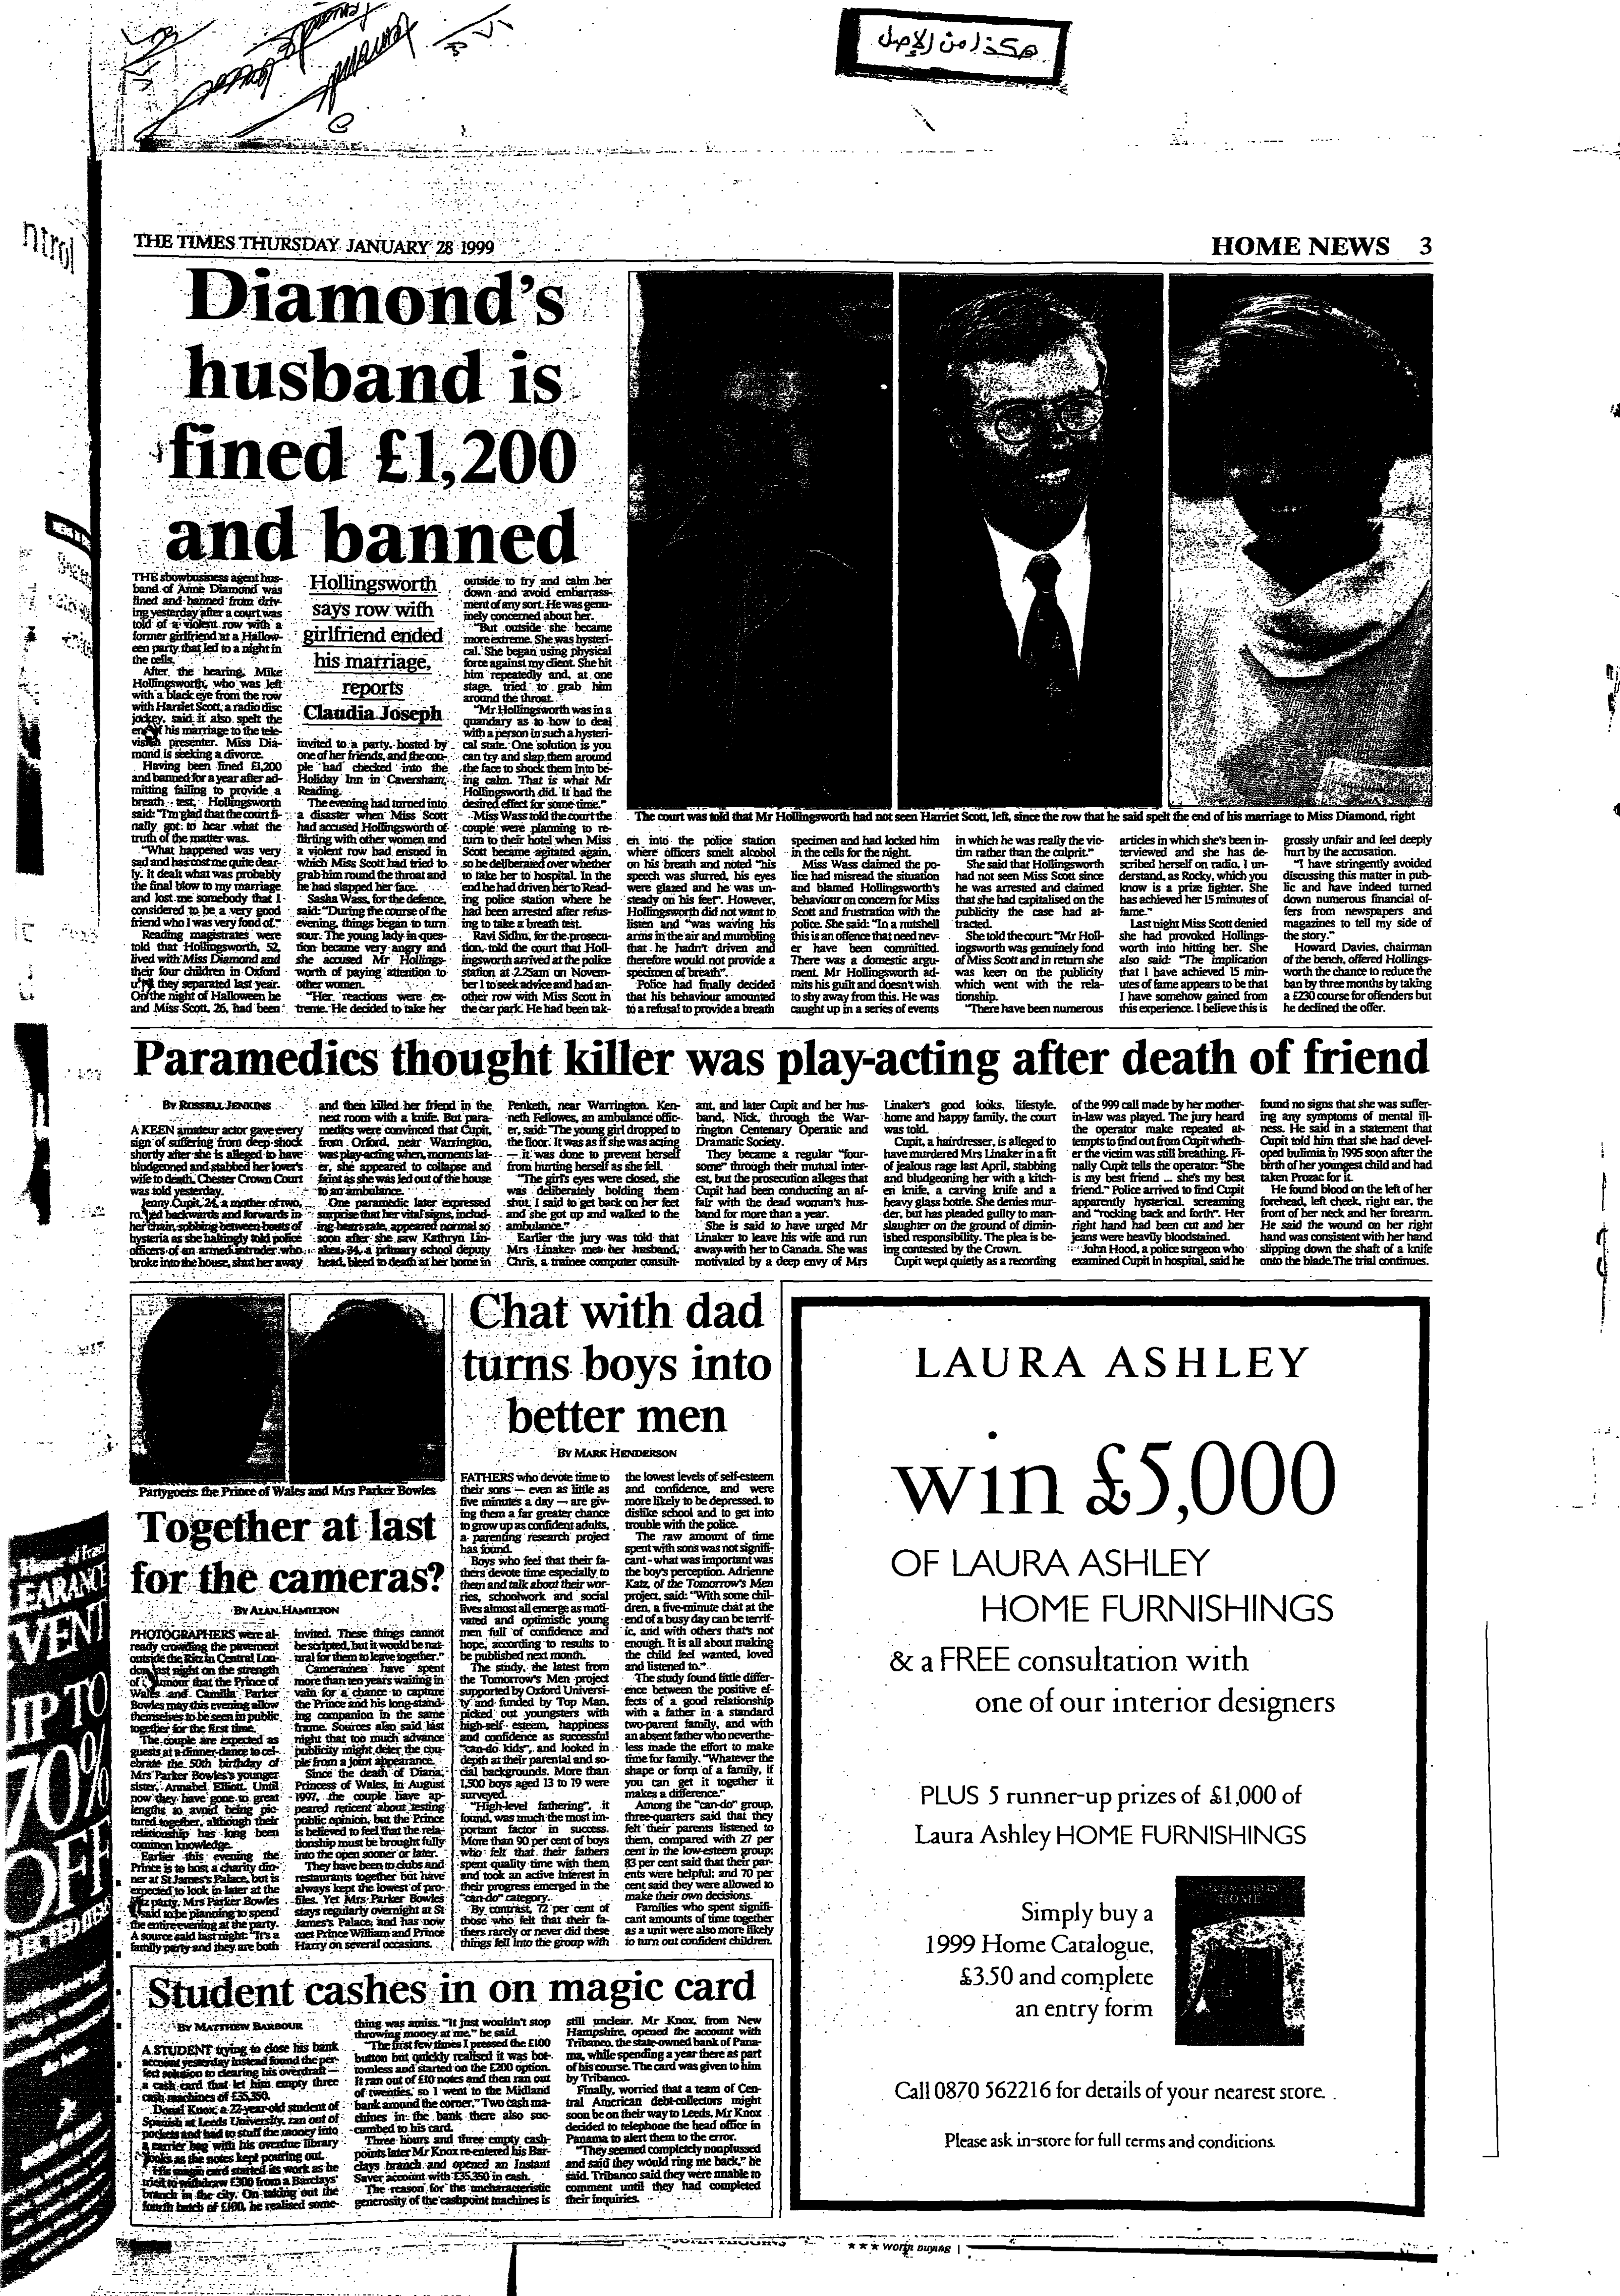 هكذا من الاصل
THE TIMES THURSDAY JANUARY 28 1999
HOME NEWS 3
Diamond's
husband is
fined £1,200
and banned
Hollingsworth
says row with
girlfriend ended
his marriage,
reports
Claudia Joseph
THE showbusiness agent hus-
band of Anne Diamond was
fined and banned from driv-
ing yesterday after a court was
told of a violent row with a
former girlfriend at a Hallow-
een party that led to a night in
the cells.
After the hearing, Mike
Hollingsworth, who was left
with a black eye from the row
with Harriet Scott, a radio disc
jockey, said it also spelt the
end of his marriage to the tele-
vision presenter. Miss Dia-
mond is seeking a divorce.
Having been fined £1,200
and banned for a year after ad-
mitting failing to provide a
breath test, Hollingsworth
said: "I'm glad that the court fi-
nally got to hear what the
truth of the matter was.
"What happened was very
sad and has cost me quite dear-
ly. It dealt what was probably
the final blow to my marriage
and lost me somebody that I
considered to be a very good
friend who I was very fond of."
Reading magistrates were
told that Hollingsworth, 52,
lived with Miss Diamond and
their four children in Oxford
they separated last year.
On the night of Halloween he
and Miss Scott, 26, had been
invited to a party hosted by
one of her friends, and the cou-
ple had checked into the
Holiday Inn in Caversham,
Reading.
The evening had turned into
a disaster when Miss Scott
had accused Hollingsworth of
flirting with other women and
a violent row had ensued in
which Miss Scott had tried to
grab him round the throat and
he had slapped her face.
Sasha Wass, for the defence,
said: "During the course of the
evening, things began to turn
sour. The young lady in ques-
tion became very angry and
she accused Mr Hollings-
worth of paying attention to
other women.
"Her reactions were ex-
treme. He decided to take her
outside to try and calm her
down and avoid embarrass-
ment of any sort. He was genu-
inely concerned about her.
"But outside she became
more extreme. She was hysteri-
cal. She began using physical
force against my client. She hit
him repeatedly and, at one
stage, tried to grab him
around the throat.
"Mr Hollingsworth was in a
quandary as to how to deal
with a person in such a hysteri-
cal state. One solution is you
can try and slap them around
the face to shock them into be-
ing calm. That is what Mr
Hollingsworth did. It had the
desired effect for some time."
Miss Wass told the court the
couple were planning to re-
turn to their hotel when Miss
Scott became agitated again,
so he deliberated over whether
to take her to hospital. In the
end he had driven her to Read-
ing police station where he
had been arrested after refus-
ing to take a breath test.
Ravi Sidhu, for the prosecu-
tion, told the court that Holl-
ingsworth arrived at the police
station at 2.25am on Novem-
ber 1 to seek advice and had an-
other row with Miss Scott in
the car park. He had been tak-
The court was told that Mr Hollingsworth had not seen Harriet Scott, left, since the row that he said spelt the end of his marriage to Miss Diamond, right
en into the police station
where officers smelt alcohol
on his breath and noted "his
speech was slurred, his eyes
were glazed and he was un-
steady on his feet". However,
Hollingsworth did not want to
listen and "was waving his
arms in the air and mumbling
that he hadn't driven and
therefore would not provide a
specimen of breath".
Police had finally decided
that his behaviour amounted
to a refusal to provide a breath
specimen and had locked him
in the cells for the night.
Miss Wass claimed the po-
lice had misread the situation
and blamed Hollingsworth's
behaviour on concern for Miss
Scott and frustration with the
police. She said: "In a nutshell
this is an offence that need nev-
er have been committed.
There was a domestic argu-
ment. Mr Hollingsworth ad-
mits his guilt and doesn't wish
to shy away from this. He was
caught up in a series of events
in which he was really the vic-
tim rather than the culprit."
She said that Hollingsworth
had not seen Miss Scott since
he was arrested and claimed
that she had capitalised on the
publicity the case had at-
tracted.
She told the court: "Mr Holl-
ingsworth was genuinely fond
of Miss Scott and in return she
was keen on the publicity
which went with the rela-
tionship.
"There have been numerous
articles in which she's been in-
terviewed and she has de-
scribed herself on radio, I un-
derstand, as Rocky, which you
know is a prize fighter. She
has achieved her 15 minutes of
fame."
Last night Miss Scott denied
she had provoked Hollings-
worth into hitting her. She
also said: "The implication
that I have achieved 15 min-
utes of fame appears to be that
I have somehow gained from
this experience. I believe this is
grossly unfair and feel deeply
hurt by the accusation.
"I have stringently avoided
discussing this matter in pub-
lic and have indeed turned
down numerous financial of-
fers from newspapers and
magazines to tell my side of
the story."
Howard Davies, chairman
of the bench, offered Hollings-
worth the chance to reduce the
ban by three months by taking
a £230 course for offenders but
he declined the offer.
Paramedics thought killer was play-acting after death of friend
BY RUSSELL JENKINS
A KEEN amateur actor gave every
sign of suffering from deep shock
shortly after she is alleged to have
bludgeoned and stabbed her lover's
wife to death, Chester Crown Court
was told yesterday.
Jenny Cupit, 24, a mother of two,
rocked backwards and forwards in
her chair, sobbing between bouts of
hysteria as she haltingly told police
officers of an armed intruder who
broke into the house, shut her away
and then killed her friend in the
next room with a knife. But para-
medics were convinced that Cupit,
from Orford, near Warrington,
was play-acting when, moments lat-
er, she appeared to collapse and
faint as she was led out of the house
to an ambulance.
One paramedic later expressed
surprise that her vital signs, includ-
ing heart rate, appeared normal so
soon after she saw Kathryn Lin-
aker, 34, a primary school deputy
head, bleed to death at her home in
Penketh, near Warrington. Ken-
neth Fellowes, an ambulance offic-
er, said: "The young girl dropped to
the floor. It was as if she was acting
— it was done to prevent herself
from hurting herself as she fell.
"The girl's eyes were closed, she
was deliberately holding them
shut. I said to get back on her feet
and she got up and walked to the
ambulance."
Earlier the jury was told that
Mrs Linaker met her husband,
Chris, a trainee computer consult-
ant, and later Cupit and her hus-
band, Nick, through the War-
rington Centenary Operatic and
Dramatic Society.
They became a regular "four-
some" through their mutual inter-
est, but the prosecution alleges that
Cupit had been conducting an af-
fair with the dead woman's hus-
band for more than a year.
She is said to have urged Mr
Linaker to leave his wife and run
away with her to Canada. She was
motivated by a deep envy of Mrs
Linaker's good looks, lifestyle,
home and happy family, the court
was told.
Cupit, a hairdresser, is alleged to
have murdered Mrs Linaker in a fit
of jealous rage last April, stabbing
and bludgeoning her with a kitch-
en knife, a carving knife and a
heavy glass bottle. She denies mur-
der, but has pleaded guilty to man-
slaughter on the ground of dimin-
ished responsibility. The plea is be-
ing contested by the Crown.
Cupit wept quietly as a recording
of the 999 call made by her mother-
in-law was played. The jury heard
the operator make repeated at-
tempts to find out from Cupit wheth-
er the victim was still breathing. Fi-
nally Cupit tells the operator: "She
is my best friend ... she's my best
friend." Police arrived to find Cupit
apparently hysterical, screaming
and "rocking back and forth". Her
right hand had been cut and her
jeans were heavily bloodstained.
John Hood, a police surgeon who
examined Cupit in hospital, said he
found no signs that she was suffer-
ing any symptoms of mental ill-
ness. He said in a statement that
Cupit told him that she had devel-
oped bulimia in 1995 soon after the
birth of her youngest child and had
taken Prozac for it.
He found blood on the left of her
forehead, left cheek, right ear, the
front of her neck and her forearm.
He said the wound on her right
hand was consistent with her hand
slipping down the shaft of a knife
onto the blade. The trial continues.
Partygoers: the Prince of Wales and Mrs Parker Bowles
Together at last
for the cameras?
BY ALAN HAMILTON
PHOTOGRAPHERS were al-
ready crowding the pavement
outside the Ritz in Central Lon-
don last night on the strength
of rumour that the Prince of
Wales and Camilla Parker
Bowles may this evening allow
themselves to be seen in public
together for the first time.
The couple are expected as
guests at a dinner-dance to cel-
ebrate the 50th birthday of
Mrs Parker Bowles's younger
sister, Annabel Elliott. Until
now they have gone to great
lengths to avoid being pic-
tured together, although their
relationship has long been
common knowledge.
Earlier this evening the
Prince is to host a charity din-
ner at St James's Palace, but is
expected to look in later at the
Ritz party. Mrs Parker Bowles
is said to be planning to spend
the entire evening at the party.
A source said last night: "It's a
family party and they are both
invited. These things cannot
be scripted, but it would be nat-
ural for them to leave together."
Cameramen have spent
more than ten years waiting in
vain for a chance to capture
the Prince and his long-stand-
ing companion in the same
frame. Sources also said last
night that too much advance
publicity might deter the cou-
ple from a joint appearance.
Since the death of Diana,
Princess of Wales, in August
1997, the couple have ap-
peared reticent about testing
public opinion, but the Prince
is believed to feel that the rela-
tionship must be brought fully
into the open sooner or later.
They have been to clubs and
restaurants together but have
always kept the lowest of pro-
files. Yet Mrs Parker Bowles
stays regularly overnight at St
James's Palace, and has now
met Prince William and Prince
Harry on several occasions.
Chat with dad
turns boys into
better men
BY MARK HENDERSON
FATHERS who devote time to
their sons — even as little as
five minutes a day — are giv-
ing them a far greater chance
to grow up as confident adults,
a parenting research project
has found.
Boys who feel that their fa-
thers devote time especially to
them and talk about their wor-
ries, schoolwork and social
lives almost all emerge as moti-
vated and optimistic young
men full of confidence and
hope, according to results to
be published next month.
The study, the latest from
the Tomorrow's Men project
supported by Oxford Universi-
ty and funded by Top Man,
picked out youngsters with
high self-esteem, happiness
and confidence as successful
"can-do kids", and looked in
depth at their parental and so-
cial backgrounds. More than
1,500 boys aged 13 to 19 were
surveyed.
"High-level fathering", it
found, was much the most im-
portant factor in success.
More than 90 per cent of boys
who felt that their fathers
spent quality time with them
and took an active interest in
their progress emerged in the
"can-do" category.
By contrast, 72 per cent of
those who felt that their fa-
thers rarely or never did these
things fell into the group with
the lowest levels of self-esteem
and confidence, and were
more likely to be depressed, to
dislike school and to get into
trouble with the police.
The raw amount of time
spent with sons was not signifi-
cant - what was important was
the boy's perception. Adrienne
Katz, of the Tomorrow's Men
project, said: "With some chil-
dren, a five-minute chat at the
end of a busy day can be terrif-
ic, and with others that's not
enough. It is all about making
the child feel wanted, loved
and listened to."
The study found little differ-
ence between the positive ef-
fects of a good relationship
with a father in a standard
two-parent family, and with
an absent father who neverthe-
less made the effort to make
time for family. "Whatever the
shape or form of a family, if
you can get it together it
makes a difference."
Among the "can-do" group,
three-quarters said that they
felt their parents listened to
them, compared with 27 per
cent in the low-esteem group;
83 per cent said that their par-
ents were helpful; and 70 per
cent said they were allowed to
make their own decisions.
Families who spent signifi-
cant amounts of time together
as a unit were also more likely
to turn out confident children.
Student cashes in on magic card
BY MATTHEW BARBOUR
A STUDENT trying to close his bank
account yesterday instead found the per-
fect solution to clearing his overdraft —
a cash card that let him empty three
cash machines of £35,350.
Donal Knox, a 22-year-old student of
Spanish at Leeds University, ran out of
pockets and had to stuff the money into
a carrier bag with his overdue library
books as the notes kept pouring out.
His magic card started its work as he
tried to withdraw £300 from a Barclays'
branch in the city. On taking out the
fourth batch of £100, he realised some-
thing was amiss. "It just wouldn't stop
throwing money at me," he said.
"The first few times I pressed the £100
button but quickly realised it was bot-
tomless and started on the £200 option.
It ran out of £10 notes and then ran out
of twenties, so I went to the Midland
bank around the corner." Two cash ma-
chines in the bank there also suc-
cumbed to his card.
Three hours and three empty cash-
points later Mr Knox re-entered his Bar-
clays branch and opened an Instant
Saver account with £35,350 in cash.
The reason for the uncharacteristic
generosity of the cashpoint machines is
still unclear. Mr Knox, from New
Hampshire, opened the account with
Tribanco, the state-owned bank of Pana-
ma, while spending a year there as part
of his course. The card was given to him
by Tribanco.
Finally, worried that a team of Cen-
tral American debt-collectors might
soon be on their way to Leeds, Mr Knox
decided to telephone the head office in
Panama to alert them to the error.
"They seemed completely nonplussed
and said they would ring me back," he
said. Tribanco said they were unable to
comment until they had completed
their inquiries.
LAURA ASHLEY
win £5,000
OF LAURA ASHLEY
HOME FURNISHINGS
& a FREE consultation with
one of our interior designers
PLUS 5 runner-up prizes of £1,000 of
Laura Ashley HOME FURNISHINGS
Simply buy a
1999 Home Catalogue,
£3.50 and complete
an entry form
Call 0870 562216 for details of your nearest store.
Please ask in-store for full terms and conditions.
ntrol
EARANCE
VENT
UP TO
70%
OFF
★★★ worth buying